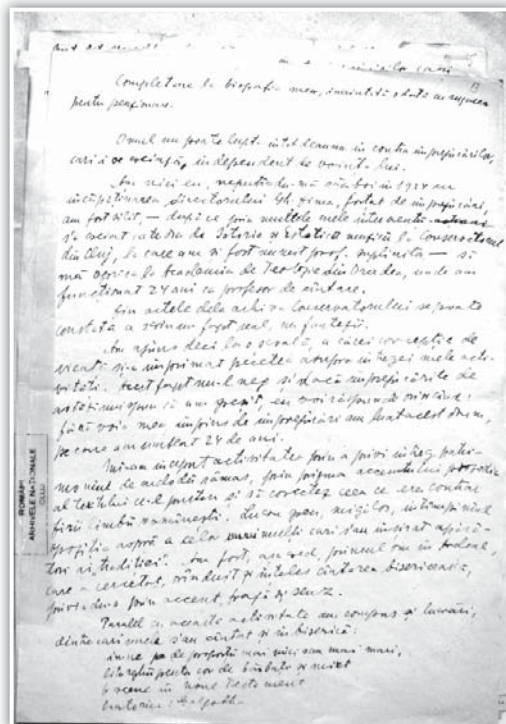 Completare la biografia mea, înaintată odată cu cererea
pentru pensionare.
Omul nu poate lupta întotdeauna în contra împrejurărilor,
cari îl creiază, independent de voința lui.
Așa nici eu, neputându-mă în 1924 cu
încăpăținarea directorului Gh. Dima, forțat de împrejurări,
am fost silit, — după ce prin multele mele intervenții
s'a creiat catedra de Istoria și Estetica muzicii la Conservatorul
din Cluj, la care am și fost numit prof. suplinitor — să
mă opresc la Academia de Teologie din Oradea, unde am
funcționat 24 ani ca profesor de cântare.
Din actele dela arhiva Conservatorului se poate
constata că scriu un fapt real, nu fantezii.
Am ajuns deci la o școală, a cărei concepție de
vieață și-a imprimat pecetea asupra întregei mele acti-
vități. Acest fapt nu-l neg și dacă împrejurările de
astăzi spun că am greșit, eu voi răspunde
fără voia mea împins de împrejurări am luat acest drum,
pe care am umblat 24 de ani.
Mi-am început activitatea prin a privi întreg patri-
moniul de melodii rămas, prin prisma accentului prozodic
al textului ce-l purtau și să corectez ceea ce era contrar
firii limbii românești. Lucru greu, migălos, întimpinând
opoziția aspră a celor mai mulți cari s'au înșirat apără-
tori ai „tradiției". Am fost, așa cred, primul om în Ardeal,
care a cercetat, rânduit și înțeles cântarea bisericească,
privind-o prin accent, frază și sens.
Paralel cu această activitate am compus și lucrări,
dintre cari unele s'au cântat și în biserică:
imne de proporții mai mici sau mai mari,
liturghii pentru cor de bărbați și mixt
6 scene în noul Testament
Oratoriul: Golgotha
ROMÂNIA
ARHIVELE NAȚIONALE
CLUJ